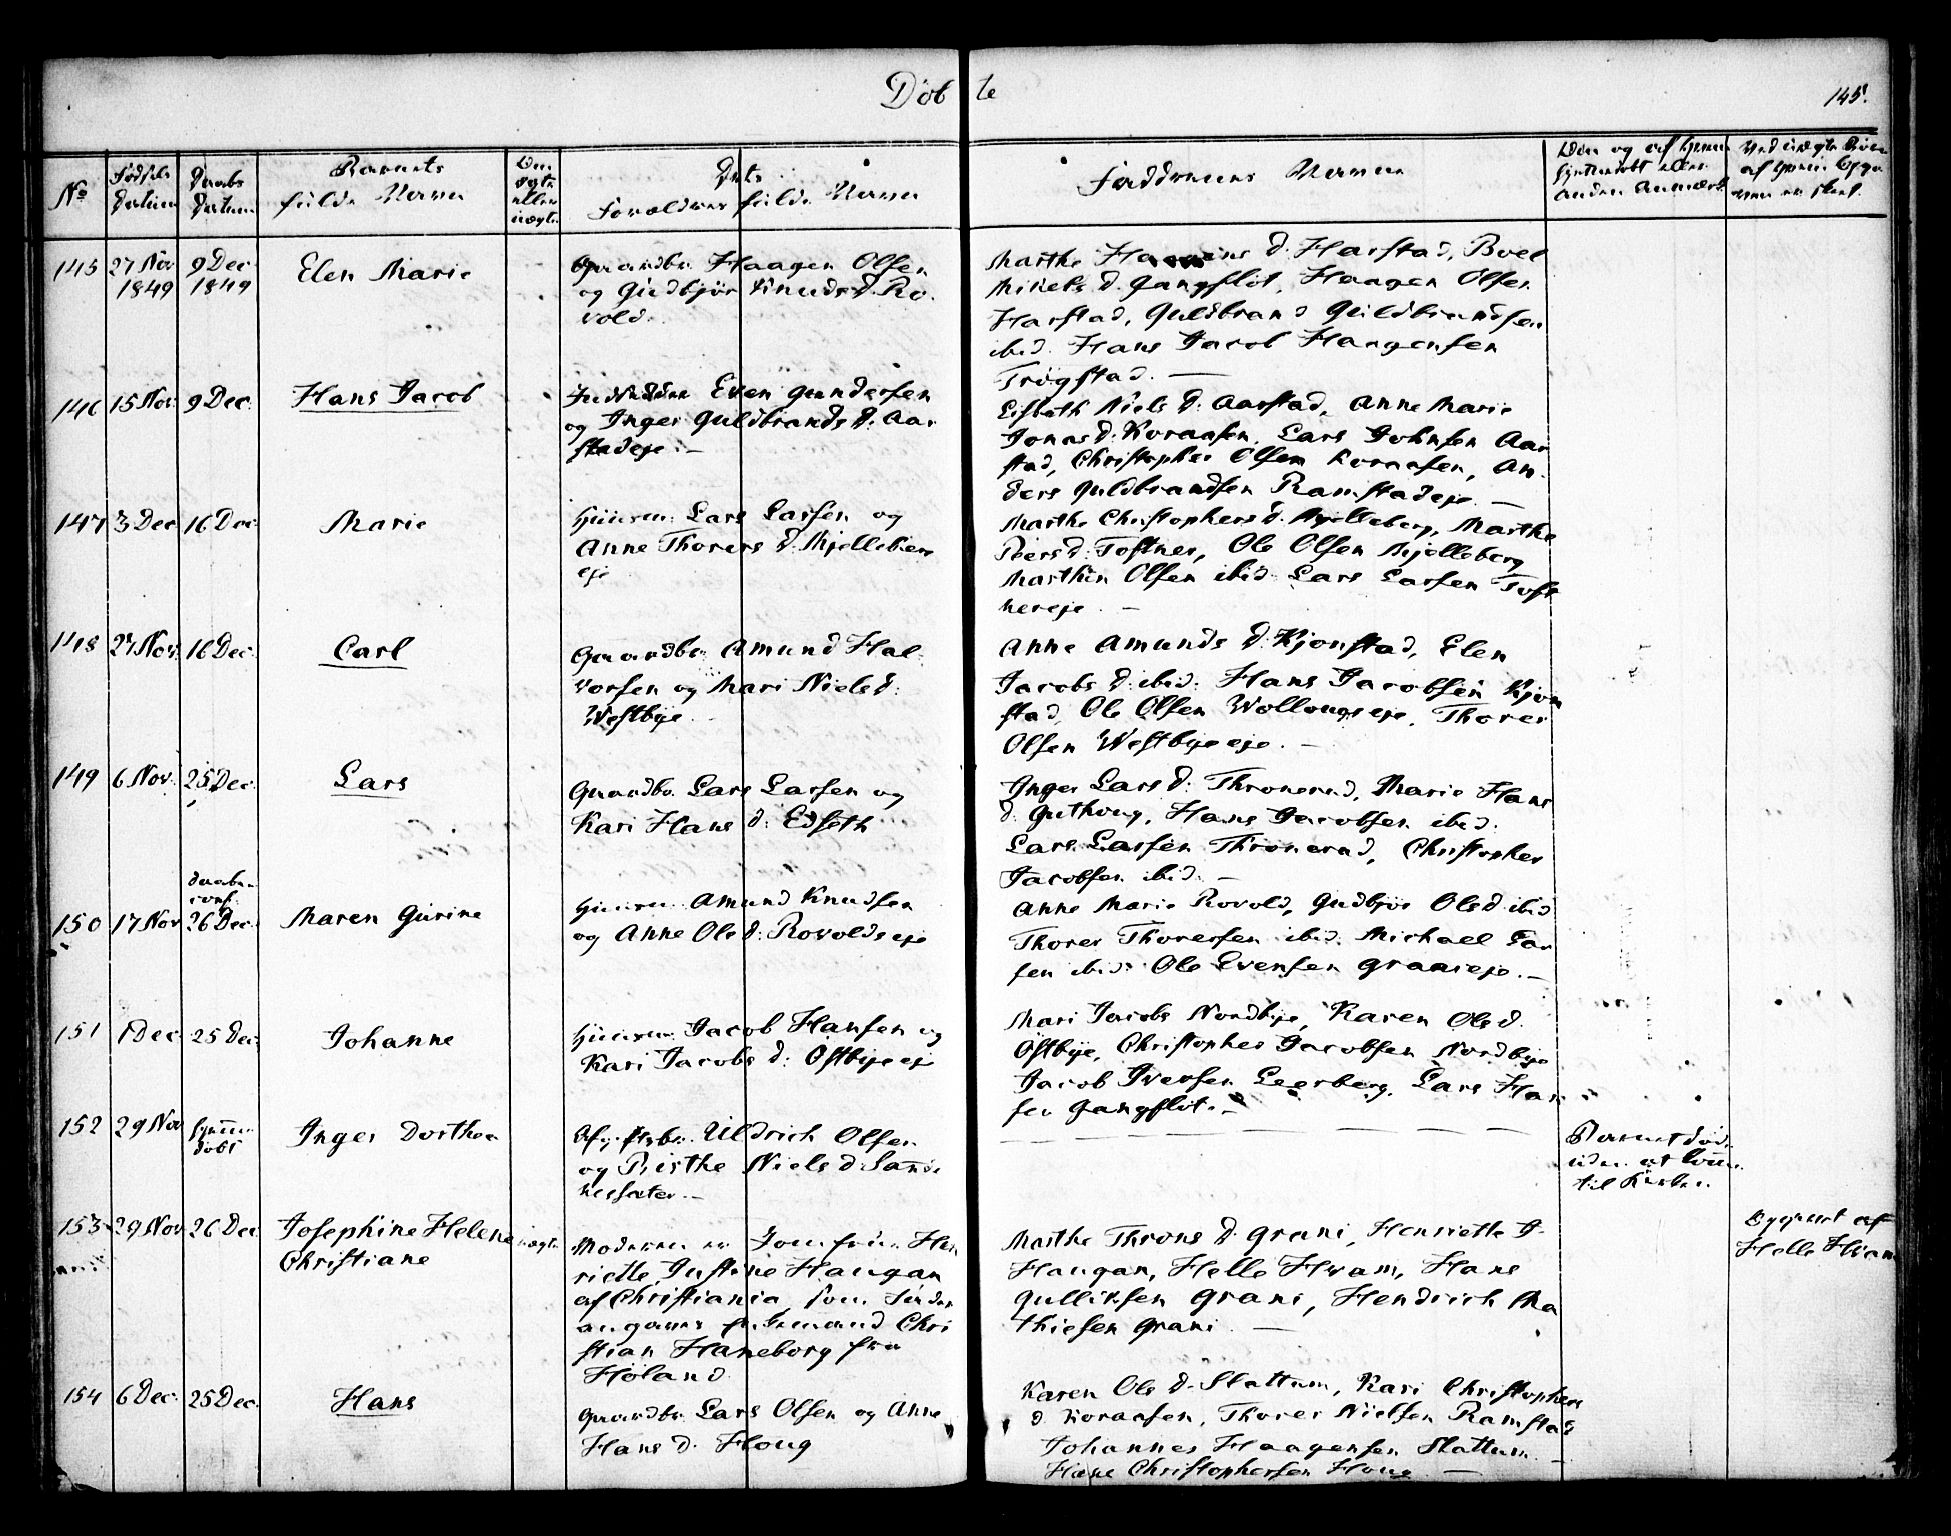 Döbte
145.
No
Födsels Datum
Daabs Datum
Barnets fulde Navn
Om ægte eller uægte
Dets Forældres fulde Navn
Faddernes Navne
145
27 Nov 1849
9 Dec 1849
Elen Marie
Gaardbr. Haagen Olsen
og Gudbjör Knudsd. Ro
vold.
Marthe d. Harstad, Boel
Mikels d. Gangflöt, Haagen Olsen
Harstad, Guldbrand Guldbrandsen
ibid. Hans Jacob Haagensen
Trögstad. —
146
15 Nov.
9 Dec.
Hans Jacob
Even Gundersen
og Inger Guldbrands d. Aar
stadeje. —
Lisbeth Niels d. Aarstad, Anne Marie
Jonas d. Koraasen, Lars Johnsen Aar
stad, Christopher Olsen Koraasen, An
ders Guldbrandsen Ramstadeje. —
147
3 Dec
16 Dec.
Marie
Huusm. Lars Larsen og
Anne Thorers d. Mjelleberg
eje
Marthe Christophers d. Mjelleberg, Marthe
Peersd. Toftner, Ole Olsen Mjelleberg
Marthin Olsen ibid. Lars Larsen Toft
nereje. —
148
27 Nov.
16 Dec.
Carl
Gaardbr. Amund Hal
vorsen og Mari Nielsd.
Westbye.
Anne Amunds d. Kjonstad, Elen
Jacobs d. ibid. Hans Jacobsen Kjon
stad, Ole Olsen Wollougseje, Thorer
Olsen Westbyeeje. —
149
6 Nov.
25 Dec.
Lars
Gaardbr. Lars Larsen og
Kari Hans d. Edseth
Inger Lars d. Thronerud, Marie Hans
d. Guthoug, Hans Jacobsen ibid.
Lars Larsen Thronerud, Christopher
Jacobsen ibid. —
150
17 Nov
daabs-
conf.
26 Dec.
Maren Gurine
Huusm. Amund Knudsen
og Anne Ols d. Rovoldseje
Anne Marie Rovold, Gudbjör Olsd. ibid
Thorer Thorersen ibid. Michael Lar
sen ibid. Ole Evensen Graaneje. —
151
1 Dec
25 Dec.
Johanne
Huusm. Jacob Hansen og
Kari Jacobs d. Ostbyeeje
Mari Jacobs Nordbye, Karen Olsd.
Ostbye, Christopher Jacobsen Nordbye
Jacob Iversen Leerberg, Lars Han
sen Gangflöt. —
152
29 Nov
hjemme
döbt
Inger Dorthea
Uldrich Olsen
og Birthe Niels d.
nessæter. —
Barnet död
uden at komme
til Kirken.
153
29 Nov
26 Dec
Josephine Helene
Christiane
uægte
Moderen er Jomfrue Hen
riette Justine Haugan
af Christiania, som Fader
angaves Christian Haneborg fra
Höland.
Marthe Throns d. Grani, Henriette J.
Haugan, Helle Hvam, Hans
Gulliksen Grani, Hendrich Ma
thiesen Grani. —
Opgivet af
Helle Hvam
154
6 Dec.
25 Dec.
Hans
Gaardbr. Lars Olsen og Anne
Hans d. Houg
Karen Ols d. Slattum, Kari Christophers
d. Koraasen, Thorer Nielsen Ramstad
Johannes Haagensen Slattum
Hans Christophersen Houg —